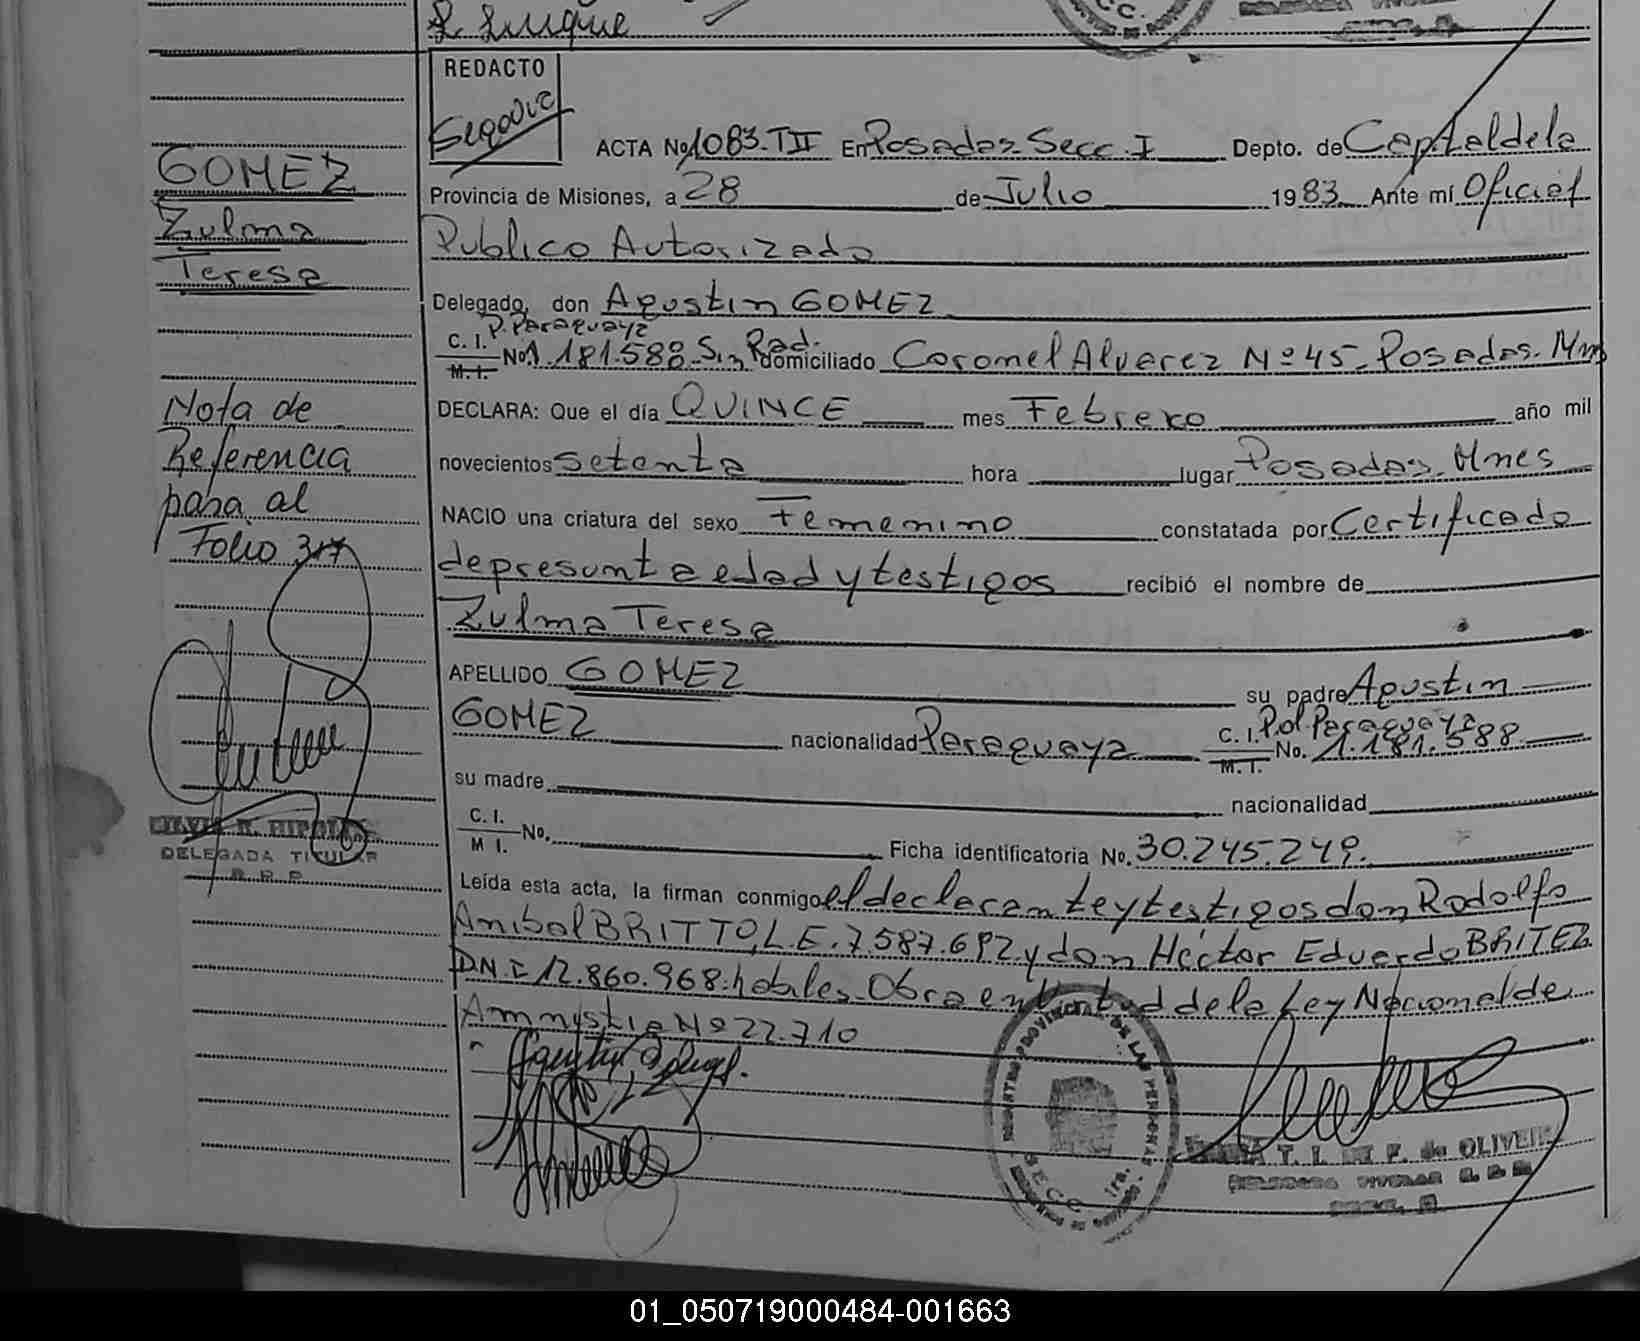 L Luque
REDACTO
Segovia
ACTA No 1083.TII En Posadas-Secc. I Depto. de Capital de la
Provincia de Misiones, a 28 de Julio 1983 Ante mí Oficial
Publico Autorizado
Delegado, don Agustin GOMEZ
P. Paraguaya
C. I. M. I. No 1.181.588 Sin Rad. domiciliado Coronel Alvarez Nº 45-Posadas. Mns
DECLARA: Que el día QUINCE mes Febrero año mil
novecientos setenta hora lugar Posadas. Mnes
NACIO una criatura del sexo Femenino constatada por Certificado
de presunta edad y testigos recibió el nombre de
Zulma Teresa
APELLIDO GOMEZ su padre Agustin
GOMEZ nacionalidad Paraguaya C. I. M. I. Pol. Paraguaya No. 1.181.588
su madre nacionalidad
C. I. M I. No. Ficha identificatoria No. 30.245.249.
Leída esta acta, la firman conmigo el declarante y testigos don Rodolfo
Anibal BRITTO, L.E. 7.587.692 y don Héctor Eduardo BRITEZ
D.N.I 12.860.968. habiles. Obra en virtud de la Ley Nacional de
Amnystia Nº 22.710
GOMEZ
Zulma
Teresa
Nota de
Referencia
pasa al
Folio 317
DELEGADA TITULAR
R. P. P.
REGISTRO PROVINCIAL DE LAS PERSONAS
SECC. 1ra.
T. L. DE F. de OLIVEIRA
DELEGADA TITULAR
01_050719000484-001663